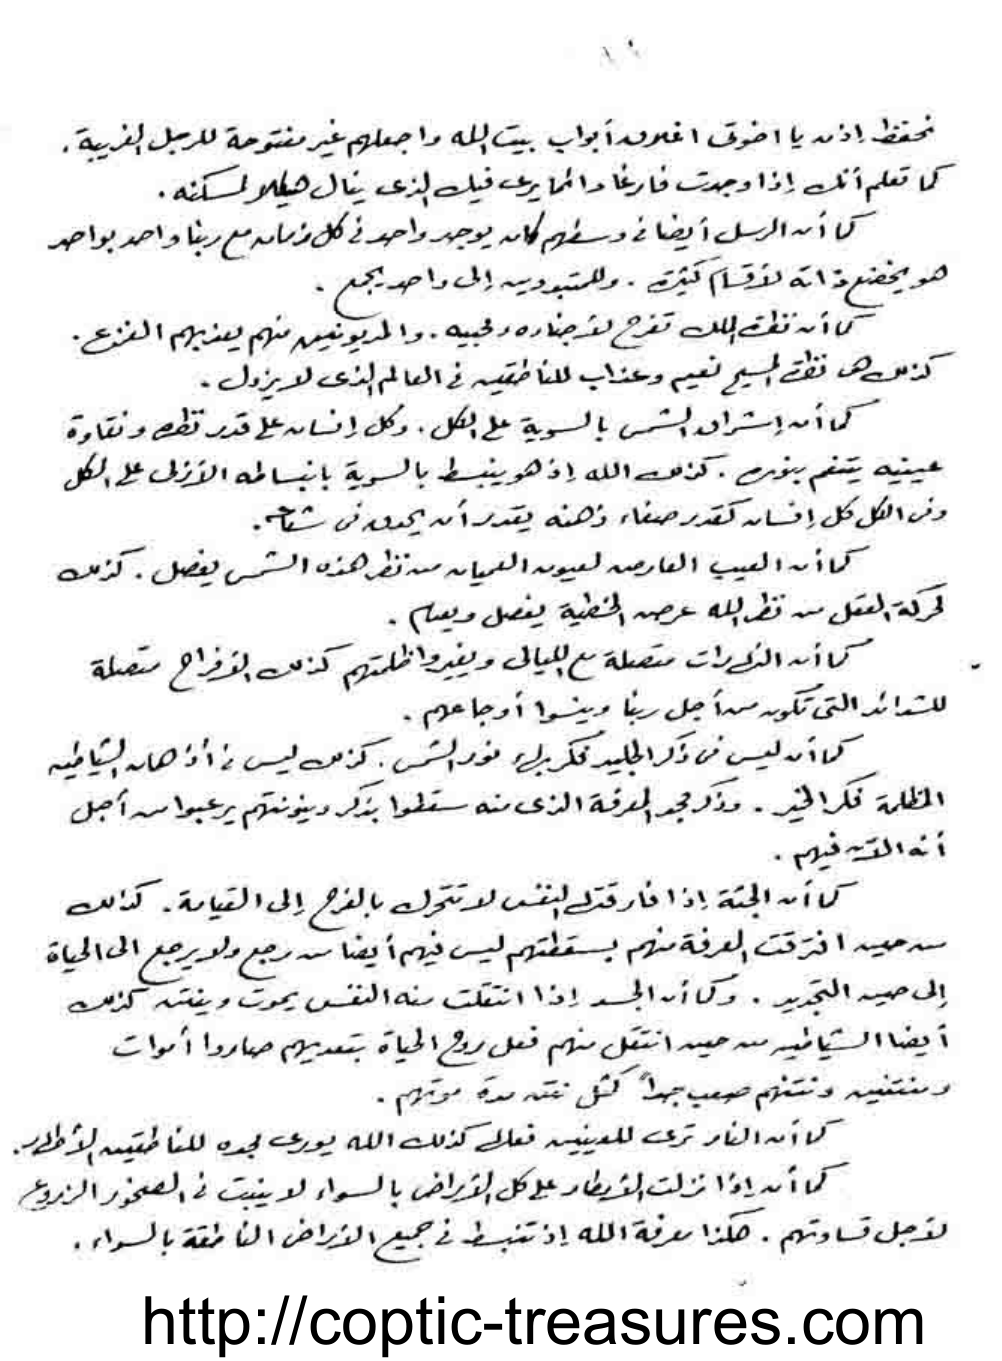 نحفظ إذن يا اخوتى اغلاق أبواب بيت الله واجعلهم غير مفتوحة للرجل الغريبة .
كما تعلم أنك إذا وجدت فارغا دائما يرى فيك الذى ينال هيكلا لمسكنه .
كما أن الرسل أيضا فى وسطهم كان يوجد واحد فى كل زمان مع ربنا واحد بواحد
هو يخضع ذاته لأقسام كثيرة . وللمتبددين إلى واحد يجمع .
كما أن نظرة الملك تفرح لأجناده ومحبيه . والمديونين منهم يعذبهم الفزع .
كذلك هى نظرة المسيح نعيم وعذاب للناطقين فى العالم الذى لا يزول .
كما أن إشراق الشمس بالسوية على الكل . وكل إنسان على قدر نظره ونقاوة
عينيه يتنعم بنوره . كذلك الله إذ هو ينبسط بالسوية بانبساطه الأزلى على الكل
وفى الكل كل إنسان كقدر صفاء ذهنه يقدر أن يحدق فى شعاعه .
كما أن العيب العارض لعيون العميان من نظر هذه الشمس يفصل . كذلك
لحركة العقل من نظر الله عرض الخطية يفصل ويعمى .
كما أن النهارات متصلة مع الليالى ويغيروا ظلمتهم كذلك الأفراح متصلة
للشدائد التى تكون من أجل ربنا وينسوا أوجاعهم .
كما أن ليس فى ذكر الجليد فكر بهاء نور الشمس . كذلك ليس فى أذهان الشياطين
المظلمة فكر الخير . وذكر مجد المعرفة الذى منه سقطوا بذكر دينونتهم يرعبوا من أجل
أنه الآن فيهم .
كما أن الجثة إذا فارقتها النفس لا تتحرك بالفرح إلى القيامة . كذلك
من حين افترقت المعرفة منهم بسقطتهم ليس فيهم أيضا من رجع ولا يرجع الى الحياة
إلى حين التجديد . وكما أن الجسد إذا انتقلت منه النفس يموت وينتن كذلك
أيضا الشياطين من حين انتقل منهم فعل روح الحياة بتعديهم صاروا أموات
ومنتنين ونتنهم صعب جداً كمثل نتن مدة موتهم .
كما أن النار ترى للعينين تعالى كذلك الله يورى مجده للناطقين الأطهار .
كما أن إذا نزلت الأمطار على كل الأراضى بالسواء لا ينبت فى الصخور الزروع
لأجل قساوتهم . هكذا معرفة الله إذ تنبسط فى جميع الأراضى الناطقة بالسواء .
http://coptic-treasures.com